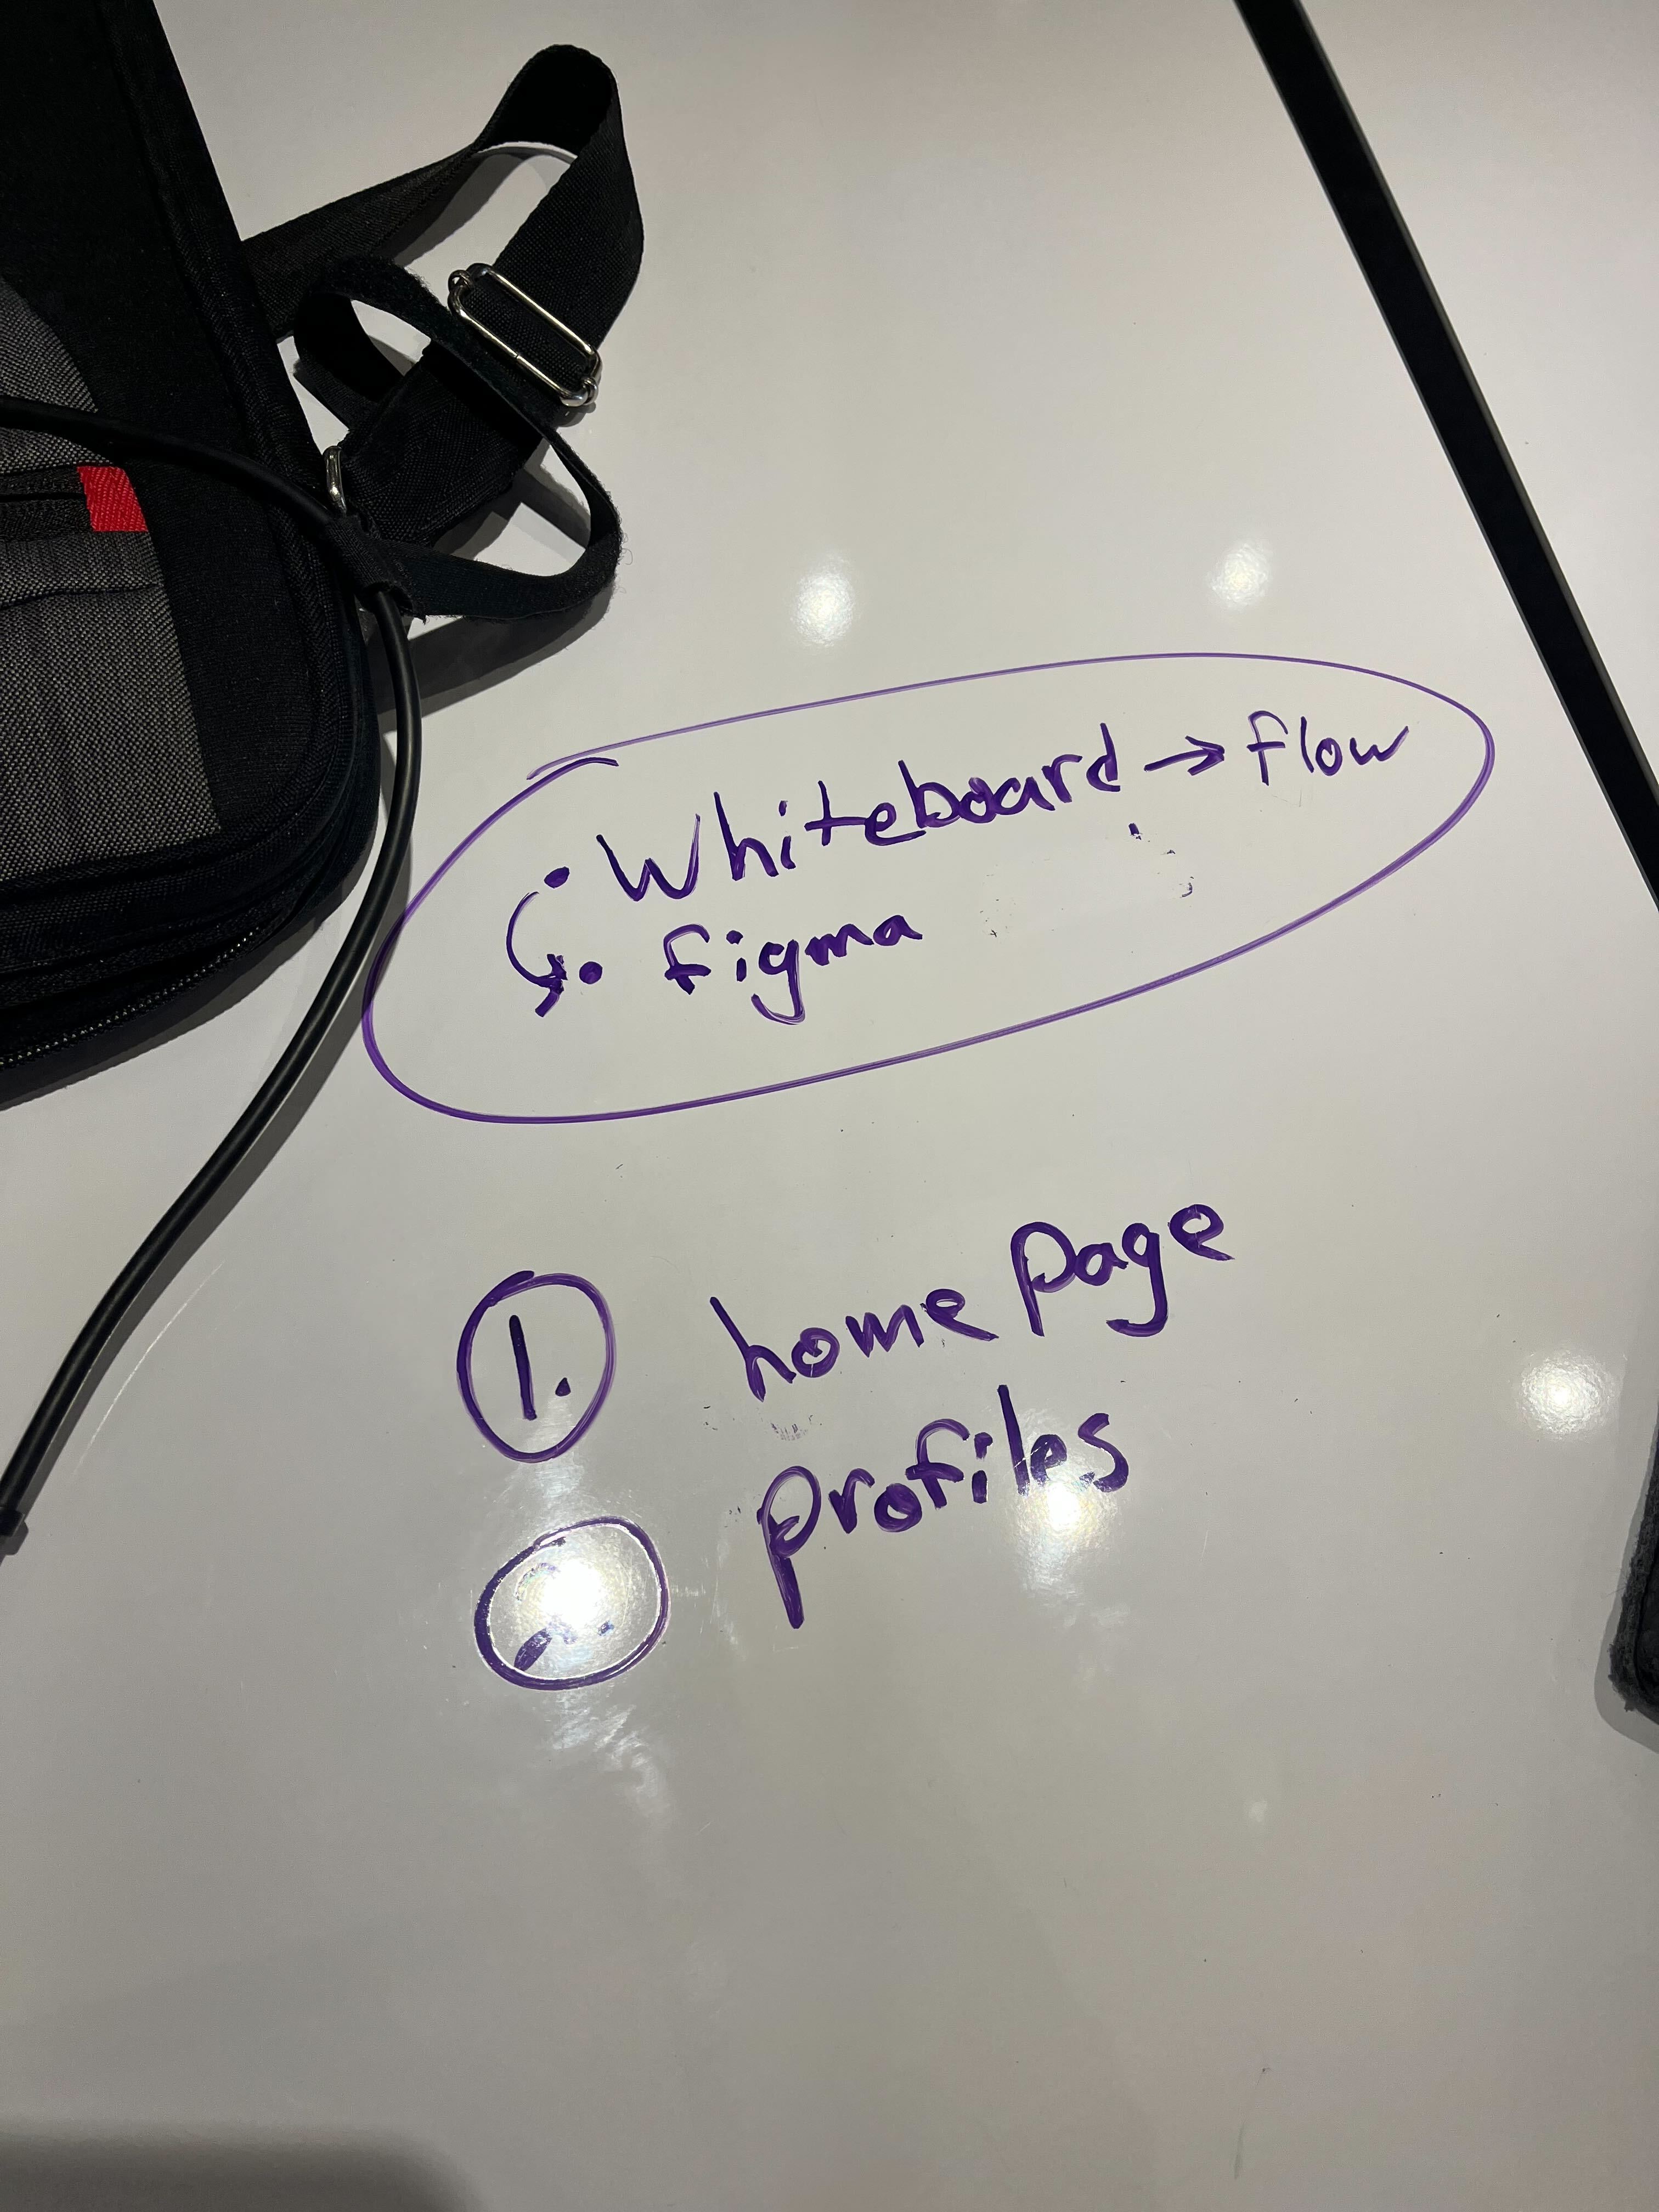 • Whiteboard → flow
• figma
1. home page
2. profiles